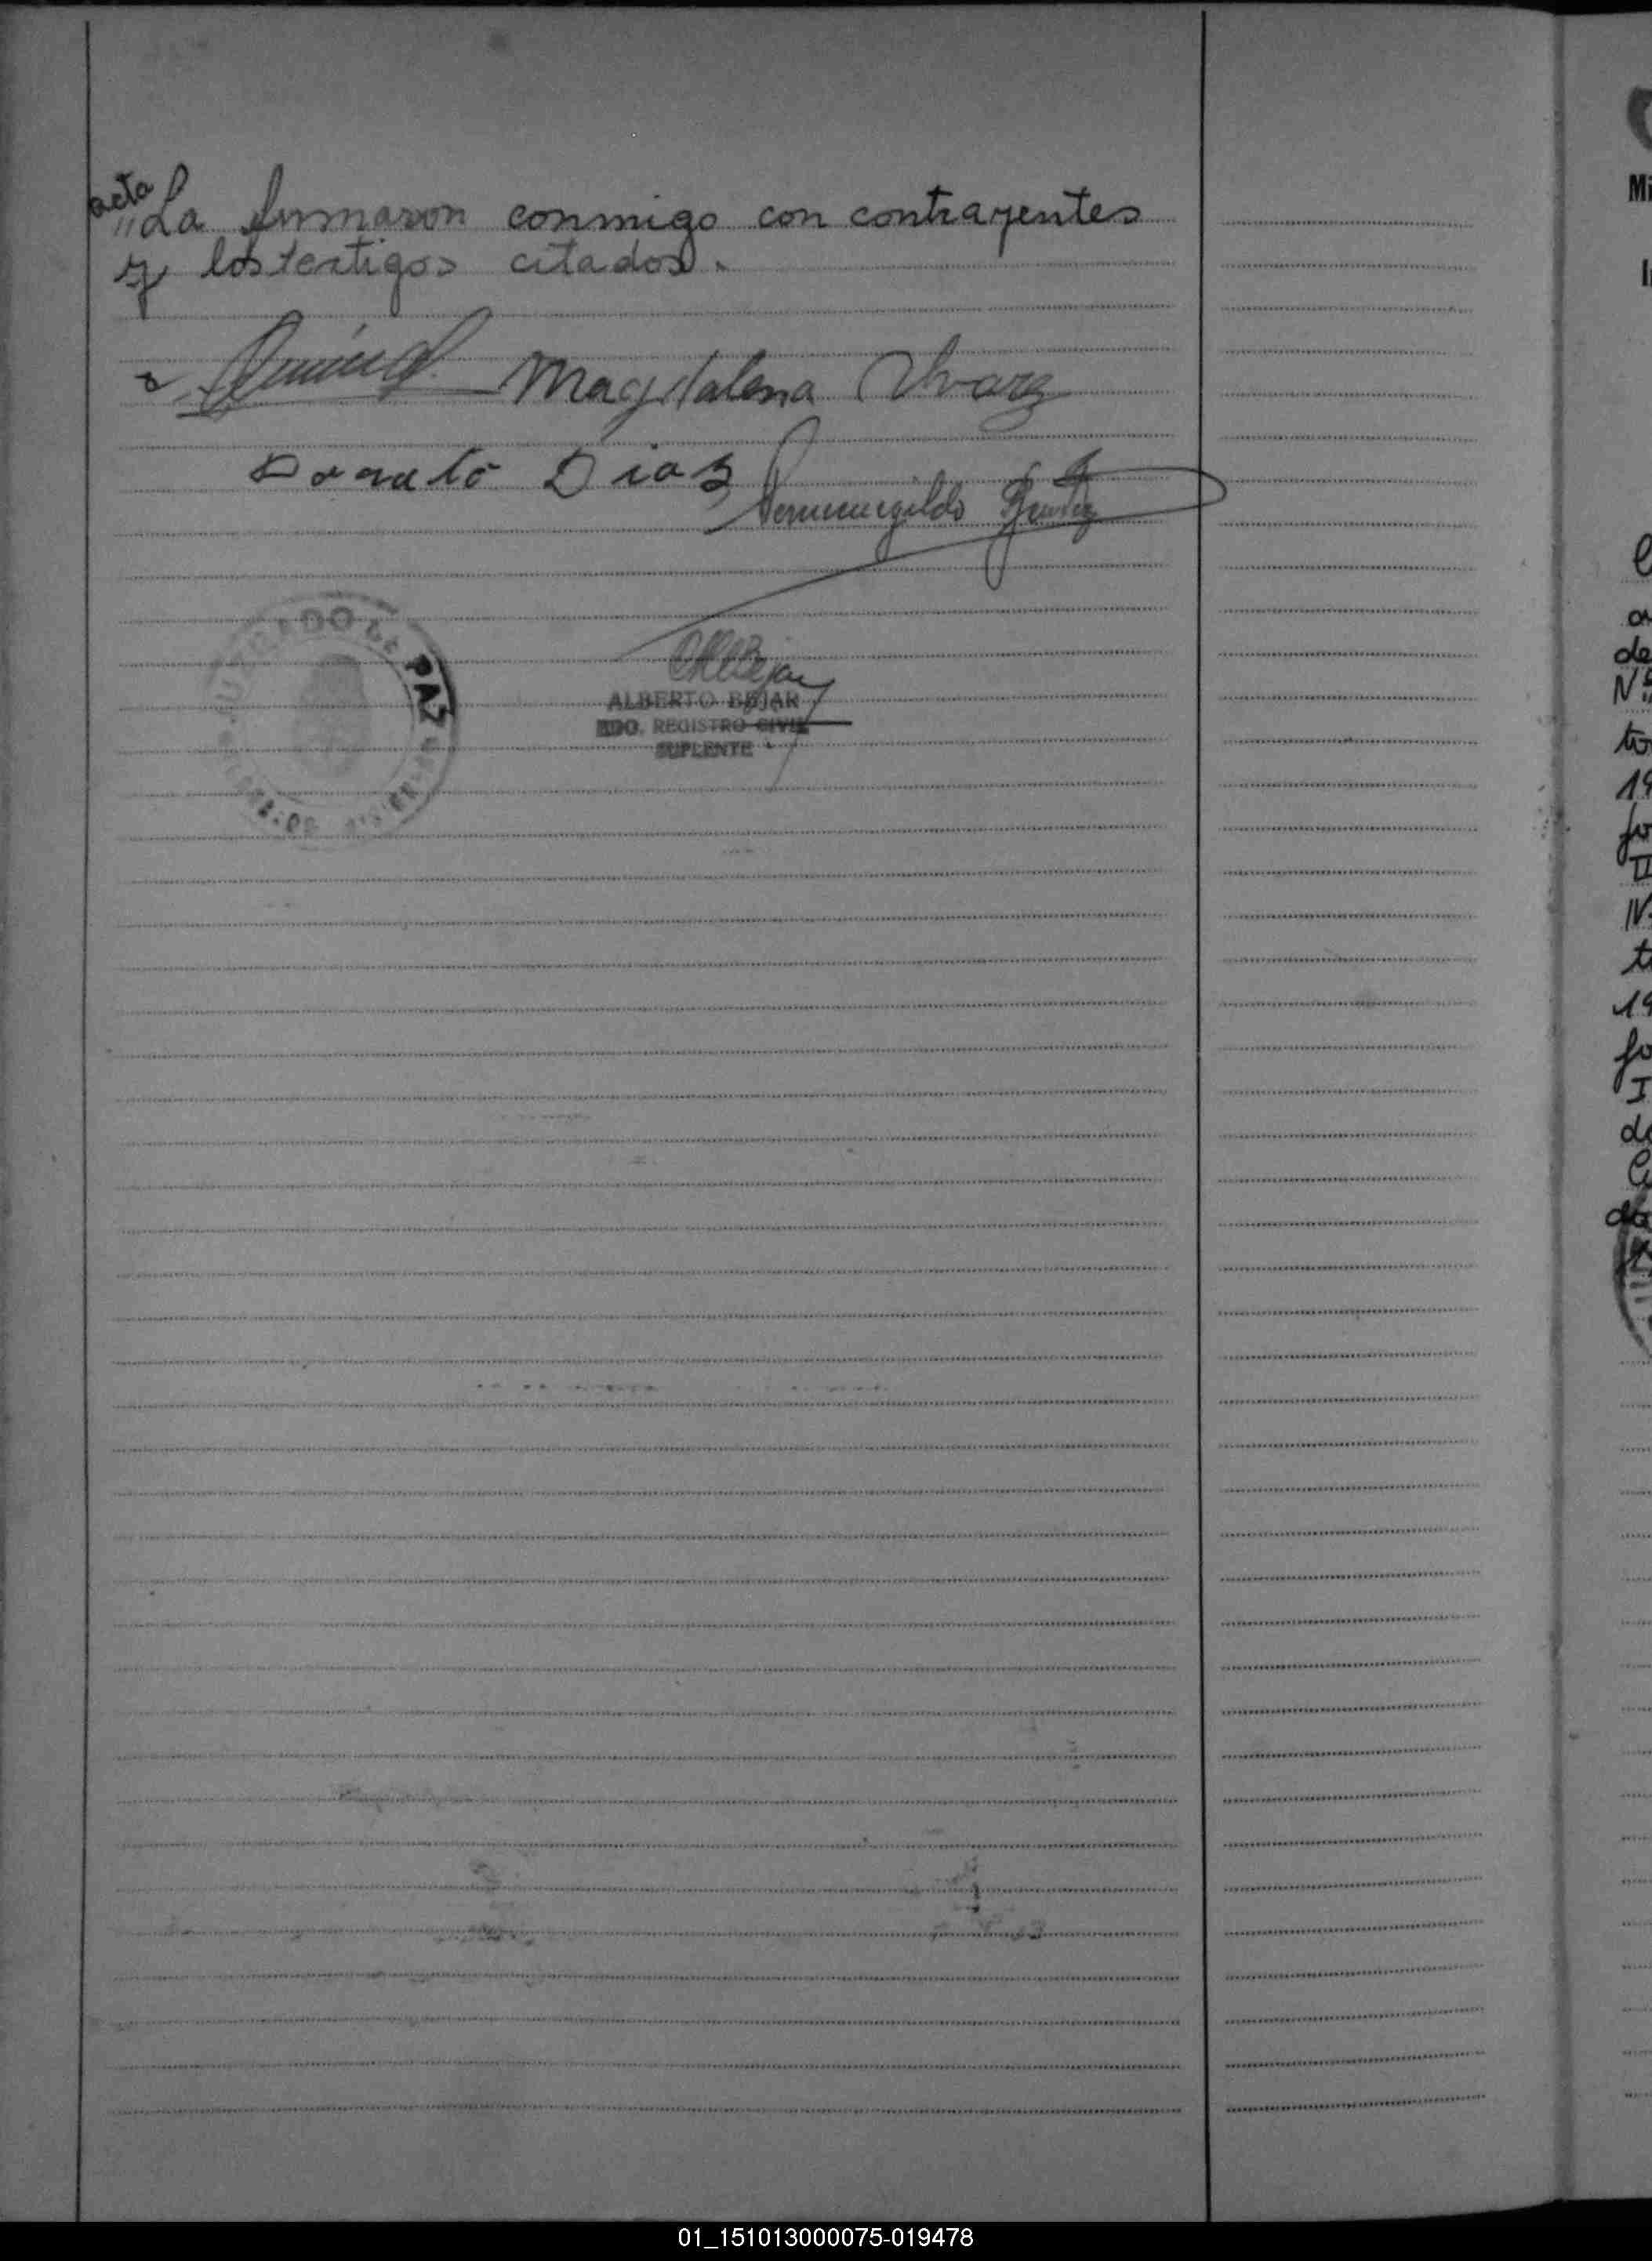 acta
"La firmaron conmigo con contrayentes
y los testigos citados.
Magdalena Alvarez
Donato Dias
Hermenegildo
ALBERTO BEJAR
EDO. REGISTRO CIVIL
SUPLENTE
JUZGADO DE PAZ
Mi
de
Nº
to
19
fo
II
IV
t
19
fo
I
de
01_151013000075-019478